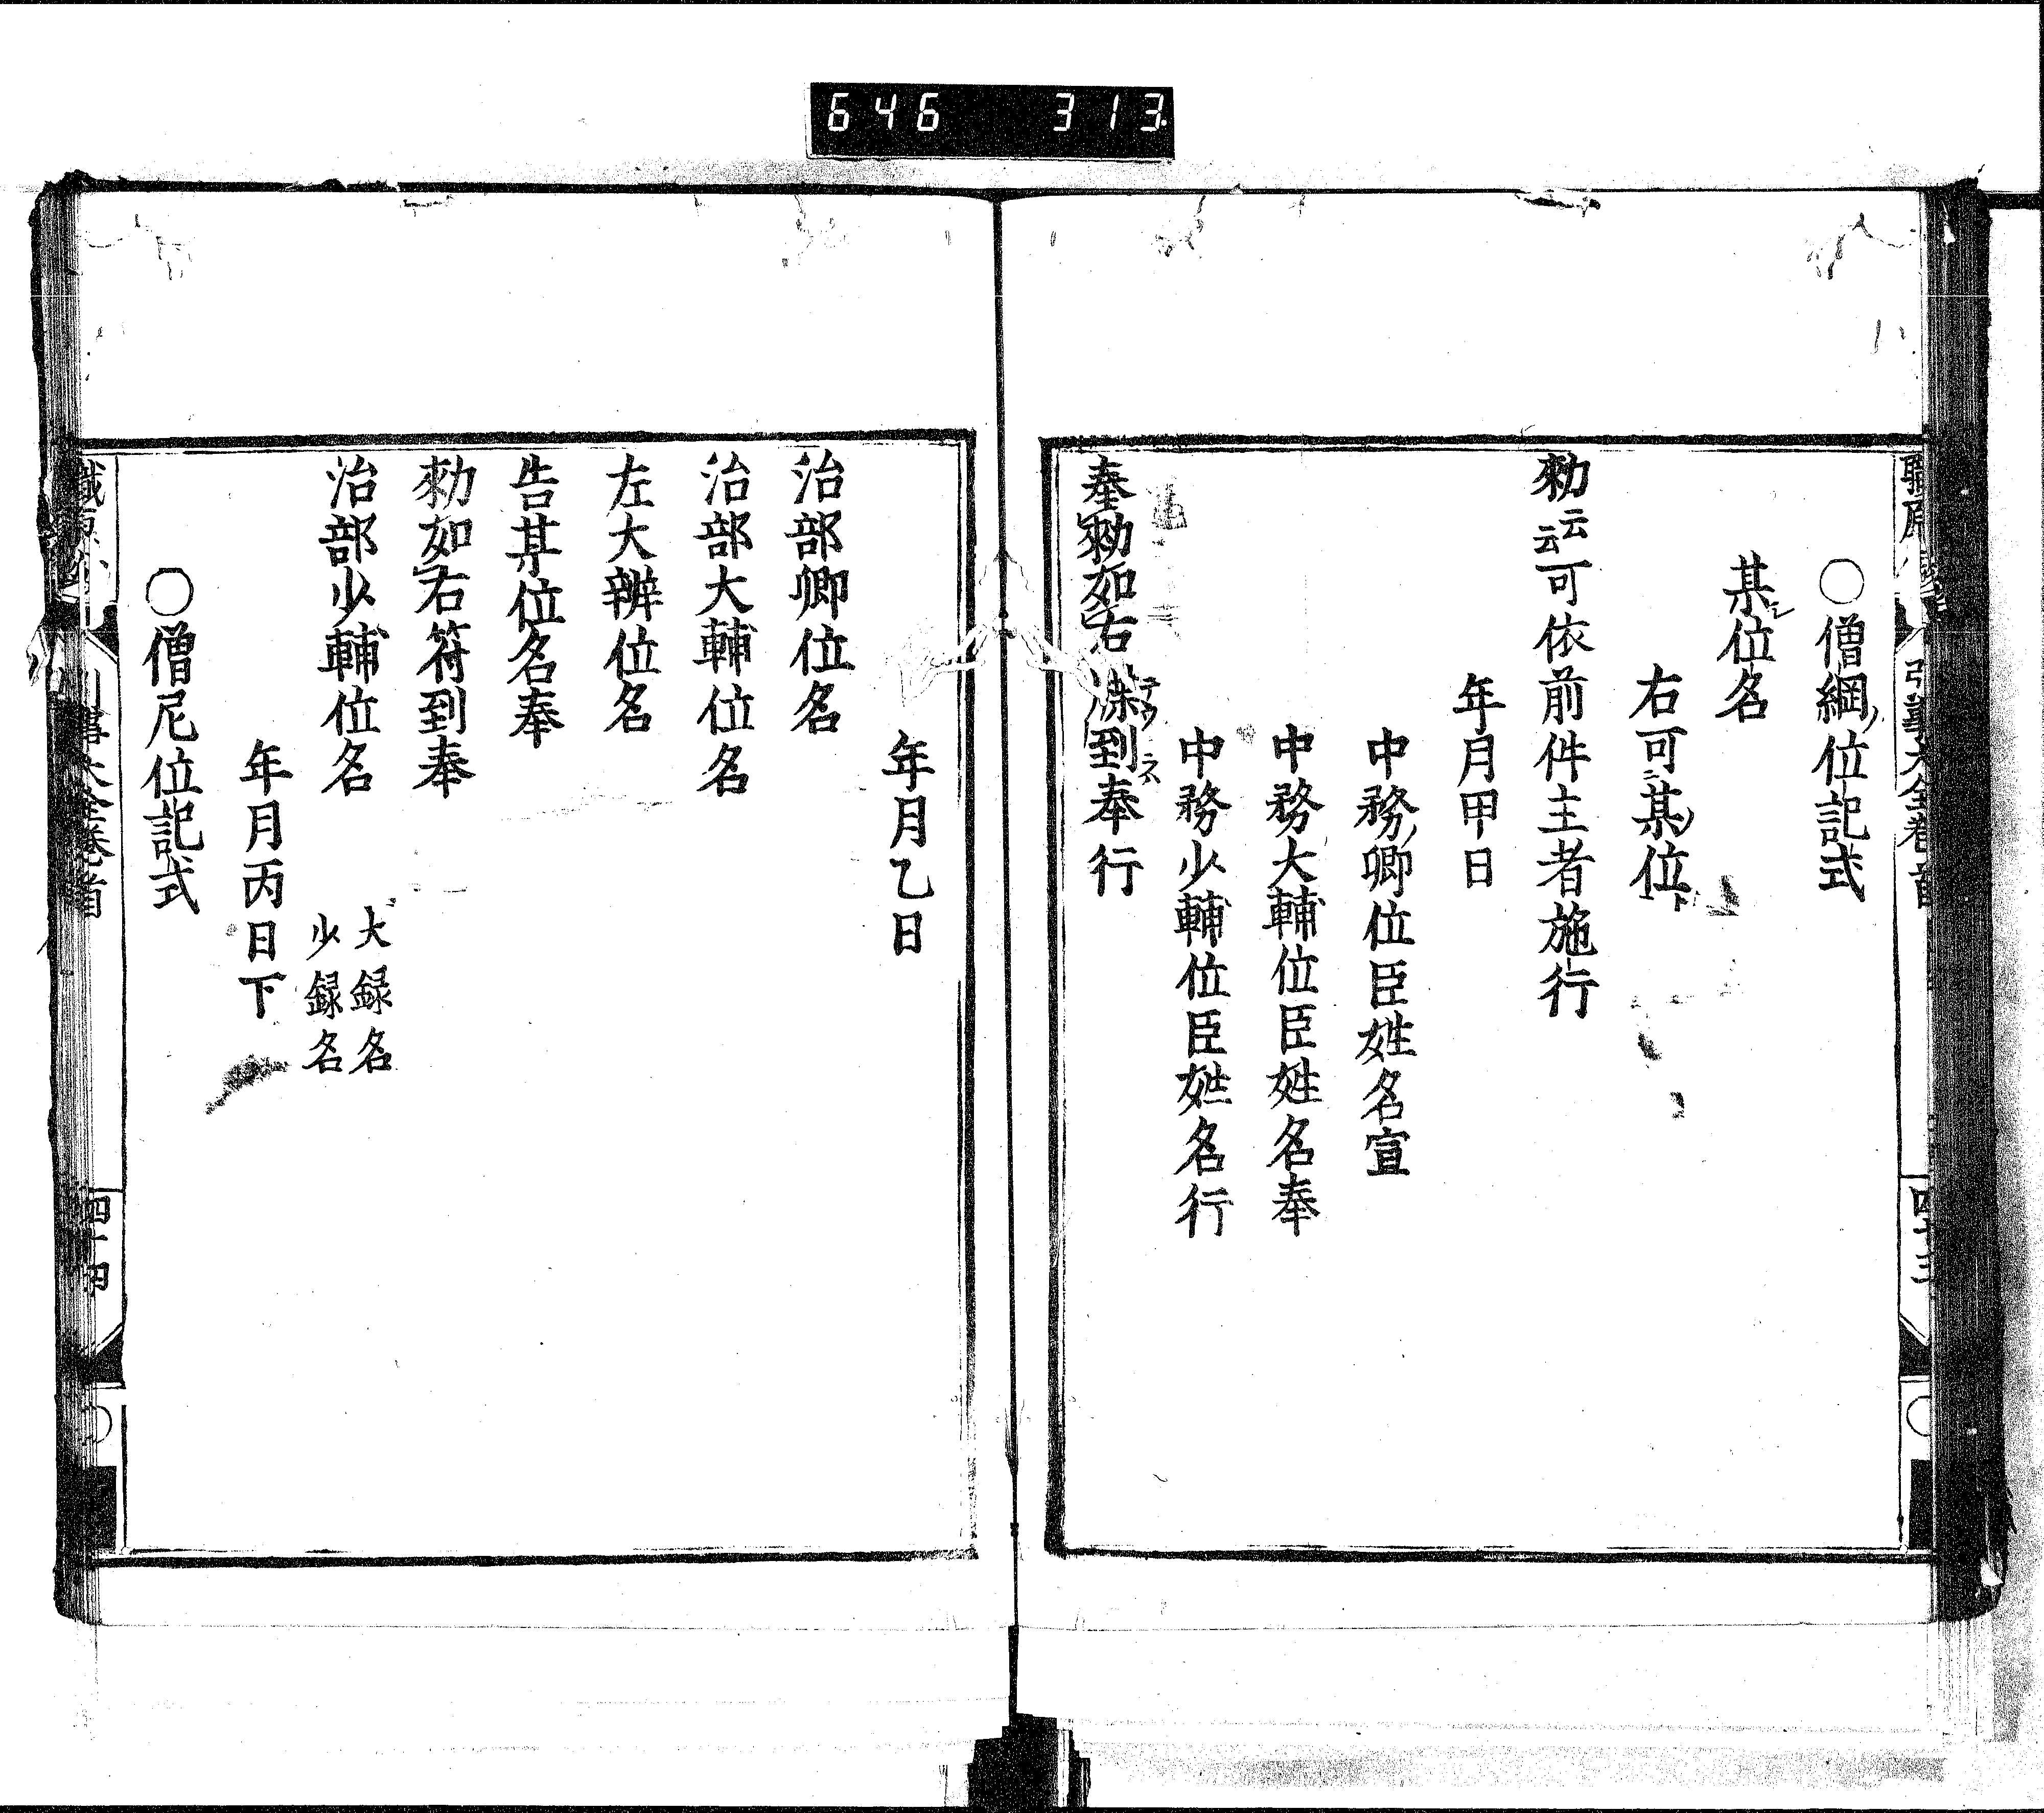 646 313.
○僧綱ノ位記式
某位名
右可某位
勅云云可依前件主者施行
年月甲日
中務ノ卿位臣姓名宣
中務大輔位臣姓名奉
中務少輔位臣姓名行
奉勅如右牒到奉行
年月乙日
治部卿位名
治部大輔位名
左大辨位名
告某位名奉
勅如右符到奉
治部少輔位名
大録名
少録名
年月丙日下
○僧尼位記式
四十四